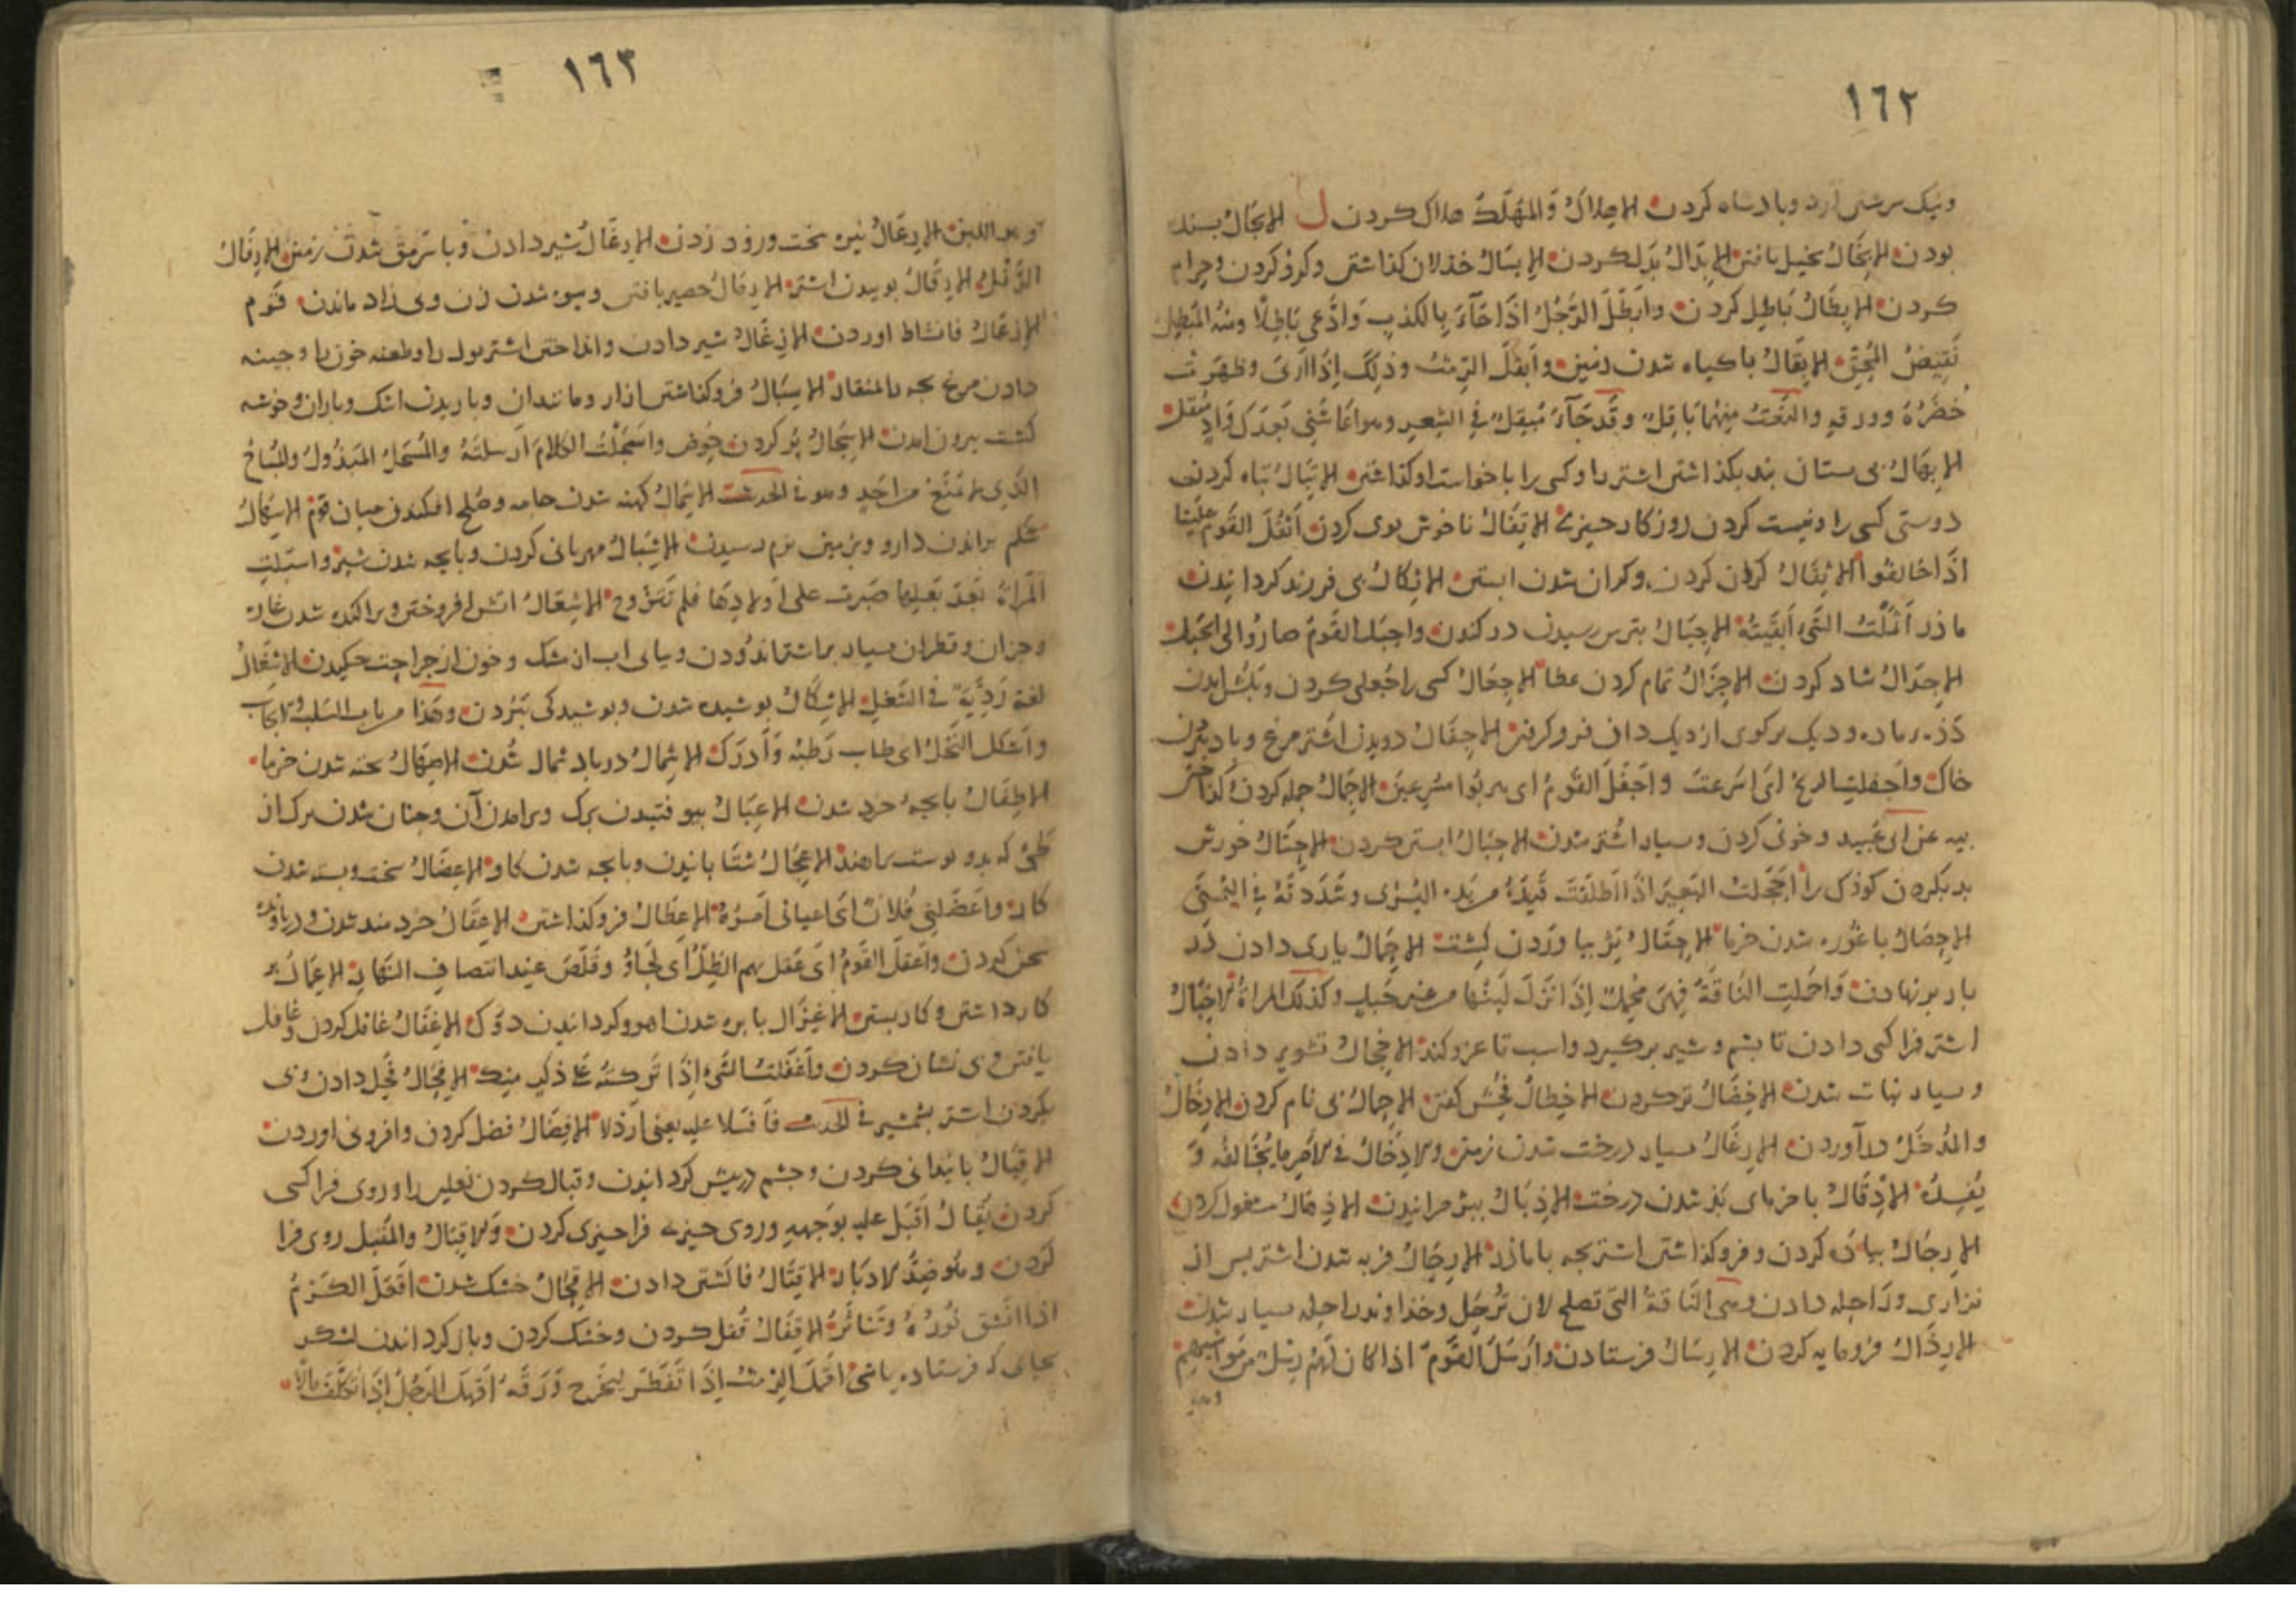 ١٦٢
ونیک سرشتی ارد وبادساه کردن الاهلاکُ وَالمَهْلَکُ هلاک کردن ل الابجَالُ بسنده
بودن الابخَالُ بخیل یافتن الابدَالُ بَدَل کردن الابسَالُ خذلان کذاشتن وکرو کردن وحرام
کردن الابطَالُ بَاطِل کردن وابَطَلَ الرَّجُلُ اذَا جَآءَ بِالکذبِ وَادَّعی بَاطِلًا ومنه المُبْطِل
نَقِیضُ المُحِقّ الابقَالُ باکیاه شدن زمین وابقَلَ الرِّمْثُ وذٰلِکَ اِذَا اَدْبیَ وظهَرَت
خضْرَةُ وورقهِ والنَّعْتُ مِنهُمَا بَاقِل وقَدجَآءَ مُبقِل فی الشِّعرِ وهو اعَاشَنِی بَعدَک وَادٍ مُبْقِل
الابهَالُ بی ستان بند بکذاشتن اشتر را وکسی را باخواست او کذاشتن الاتبَالُ تباه کردن
دوستی کسی را ونیست کردن روزکار چیزی الاتفَالُ ناخوش بوی کردن اَثفَلَ القَومُ عَلَینا
اذَا خَالفُوا الاثقَالُ کران کردن وکران شدن ابستن الاثکالُ بی فرزند کردانیدن
ماذر اَثمَلْتُ الشَّیْءَ اَبقَیتُهُ الاجبَالُ بترس رسیدن در کندن واجبَلَ القَومُ صارُوا الی الجَبَل
الاجذَالُ شاد کردن الاجزَالُ تمام کردن عطا الاجعَالُ کسی را جُعلی کردن وبکشن امدن
دَذه ماده ودیک برکوی ازدیک دان فروکرفتن الاجفَالُ دویدن اشتر مرغ وباد بردن
خاک واَجفلَت الریحُ اَی اَسرَعت واَجفَلَ القَومُ ای هربوا مُسْرِعینَ الاجمَالُ جمله کردن
به عن ای عبید وخوبی کردن وبسیار اشتر شدن الاحبَالُ ابستن کردن الاحثَالُ خورش
بد بکردن کوذک را اَحجَلتُ البَعیرَ اذَا اطلَقتَ قَیدَهُ من یده الیُسْری وشَدَدتَهُ فی الیُمنَی
الاحصَالُ باغُوره شدن خرما الاحفَالُ بَرْ بیاوردن کِشت الاحمَالُ یاری دادن در
بار برنهادن وَاحمَلتِ النَّاقَةُ فَهِیَ مُحْمِلٌ اِذَا نَزَلَ لَبَنُهَا من غیر حَبَلٍ وکذلک المراةُ والاخبَالُ
اشتر فرا کسی دادن تا بشم وشیر برکیرد واسب تا غزو کند الاخجَالُ تشویر دادن
وبسیار نبات شدن الاخضَالُ ترکردن الاخطَالُ فُحْش کفتن الاخمَالُ بی نام کردن الادخَالُ
والمُدْخَلُ درآوردن الادغَالُ بسیار درخت شدن زمین والادخَالُ فی الامْرِ مَا یُخَالفُه وَ
یُفسِدُهُ الادقَالُ باخرمای بَذ شدن درخت الاذبَالُ پبژمرانیدن الاذهَالُ مشغول کردن
الارجَالُ بیاذه کردن وفروکذاشتن اشتر بجه با ماذر الارحَالُ فربه شدن اشتر بس از
نزاری ورَاحِله دادن وهی النَّاقَةُ الَّتِی تصلح لان تُرْحَل وخذاوند راحله بسیار شدن
الارذَالُ فرومایه کردن الارسَالُ فرستادن وَاَرسَلَ القَومُ اذا کان لَهُمْ رِسْلٌ من مَوَاشِیهِمْ
وهو
١٦٣
وهو اللبن الارعَالُ نیزه سخت وروذ زدن الارغَالُ شیر دادن وبا سرمق شدن زمین الارفَالُ
الرَّفْلُ الارقَالُ بوییدن اشتر الارمَالُ حصیر بافتن وبیوه شدن زن وبی زاد ماندن قوم
الازعَالُ فانشاط اوردن الازغَالُ شیر دادن وانداختن اشتر بول را وطعنه خون را وجینه
دادن مرغ بجه را بمنقار الاسبَالُ فروکذاشتن ازار ومانند آن وباریدن اشک وباران وخوشه
کشت بیرون امدن الاسجَالُ بُر کردن حَوض واسْجَلْتُ الکَلامَ اَرسَلتَهُ والمُسْجَلُ المَبذُولُ والمُبَاحُ
الَّذِی لا یُمْنَعُ من اَحَدٍ وهو فی الحدیث الاسمَالُ کهنه شدن جامه وصُلح افکندن میان قوم الاسهَالُ
شکم براندن دارو وبزمین نرم رسیدن الاشبَالُ مهربانی کردن وبابجه شدن شیر واشبَلَتِ
المَرأةُ بَعدَ بَعلِهَا صَبَرت علی اَولادِهَا فلم تتَزَوج الاشعَالُ اتش افروختن وبراکنده شدن غارت
وجزان وقطران بسیار بر اشتر اندُودن وبیای اب از مشک وخون از جراحت جکیدن الاشغَالُ
لغة رَدِیَّة فی الشَّغلِ الاشکَالُ بوشیده شدن وبوشیدکی بَبُردن وهَذَا من باب السَّلبِ والایجاب
واشکل النَّخلُ ای طاب رُطبُهُ وَاَدرَکَ الاشمَالُ در باد شمال شدن الاصهَالُ بخته شدن خرما
الاطفَالُ بابجه خرد شدن الاعبَالُ بیوفتیدن برک وبرامدن آن وجنان شدن برک از
کَه بدو بوست براهند الاعجَالُ شتَابانیدن وبابجه شدن کاو الاعضَالُ سخت وبسته شدن
کار واَعضَلَنِی فُلان اَی اَعیانی اَمْرُهُ الاعطَالُ فروکذاشتن الاعقَالُ خردمند شدن ودریافتن
سخن کردن واعقَلَ القَومُ اَی عَقَل بهم الظِّلُّ ای لَجَأ وقَلَصَ عند انتصافِ النَّهار الاعمَالُ بر
کار داشتن وکار بستن الاغزَالُ بابره شدن اهو وکردانیدن دوک الاغفَالُ غافل کردن وغافل
یافتن وبی نشان کردن واَغفَلتُ الشَّیءَ اِذَا تَرکتَهُ عَلی ذُکرٍ مِنک الافحَالُ فَحل دادن وبی
بکردن اشتر بشمشیر فی الحدیث فَافسَلا علیه یعنی اَرذَلا الافضَالُ فضل کردن وافزونی اوردن
الاقبَالُ بانیدانی کردن وجشم دربیش کردانیدن وقبال کردن نعلین را وروی فراکسی
کردن یُقَالُ اَقبَلَ علیه بوَجهِهِ وروی چیزی فرا چیزی کردن والاقبَالُ والمُقْبَلُ روی فرا
کردن وهُو ضِدُّ الادبَار الاقتَالُ فاکشتن دادن الاقحَالُ خشک شدن اَقعَلَ الکَرْمُ
اذا انشَق نَورُهُ وتَنَاثَرَ الاقفَالُ قُفل کردن وخشک کردن وبازکردانیدن لشکر
بجای که فرستاده باشی اَقمَلَ الرِّمثُ اِذَا تَفَطَّرَ لیخْرُجَ وَرَقُه اَقهَلَ الرَّجُلُ اِذَا تکَلَّفَ مالا